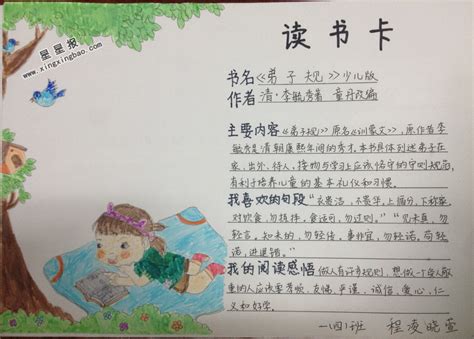 星星报
www.xingxingbao.com
读书卡
书名《弟子规》少儿版
作者 清·李毓秀著 童丹改编
主要内容《弟子规》原名《训蒙文》,原作者李
毓秀是清朝康熙年间的秀才。本书具体列述弟子在
家、出外、待人、接物与学习上应该恪守的守则规范,
有利于培养儿童的基本礼仪和习惯。
我喜欢的句段 "衣贵洁,不贵华,上循分,下称家。
对饮食,勿拣择,食适可,勿过则。""见未真,勿
轻言。知未的,勿轻传。事非宜,勿轻诺。苟轻
诺,进退错。"
我的阅读感悟 做人有许多规则,想做一个令人敬
重的人应该要孝顺、友悌、严谨、诚信、爱心、仁
义和好学。
一(四)班 程凌晓萱